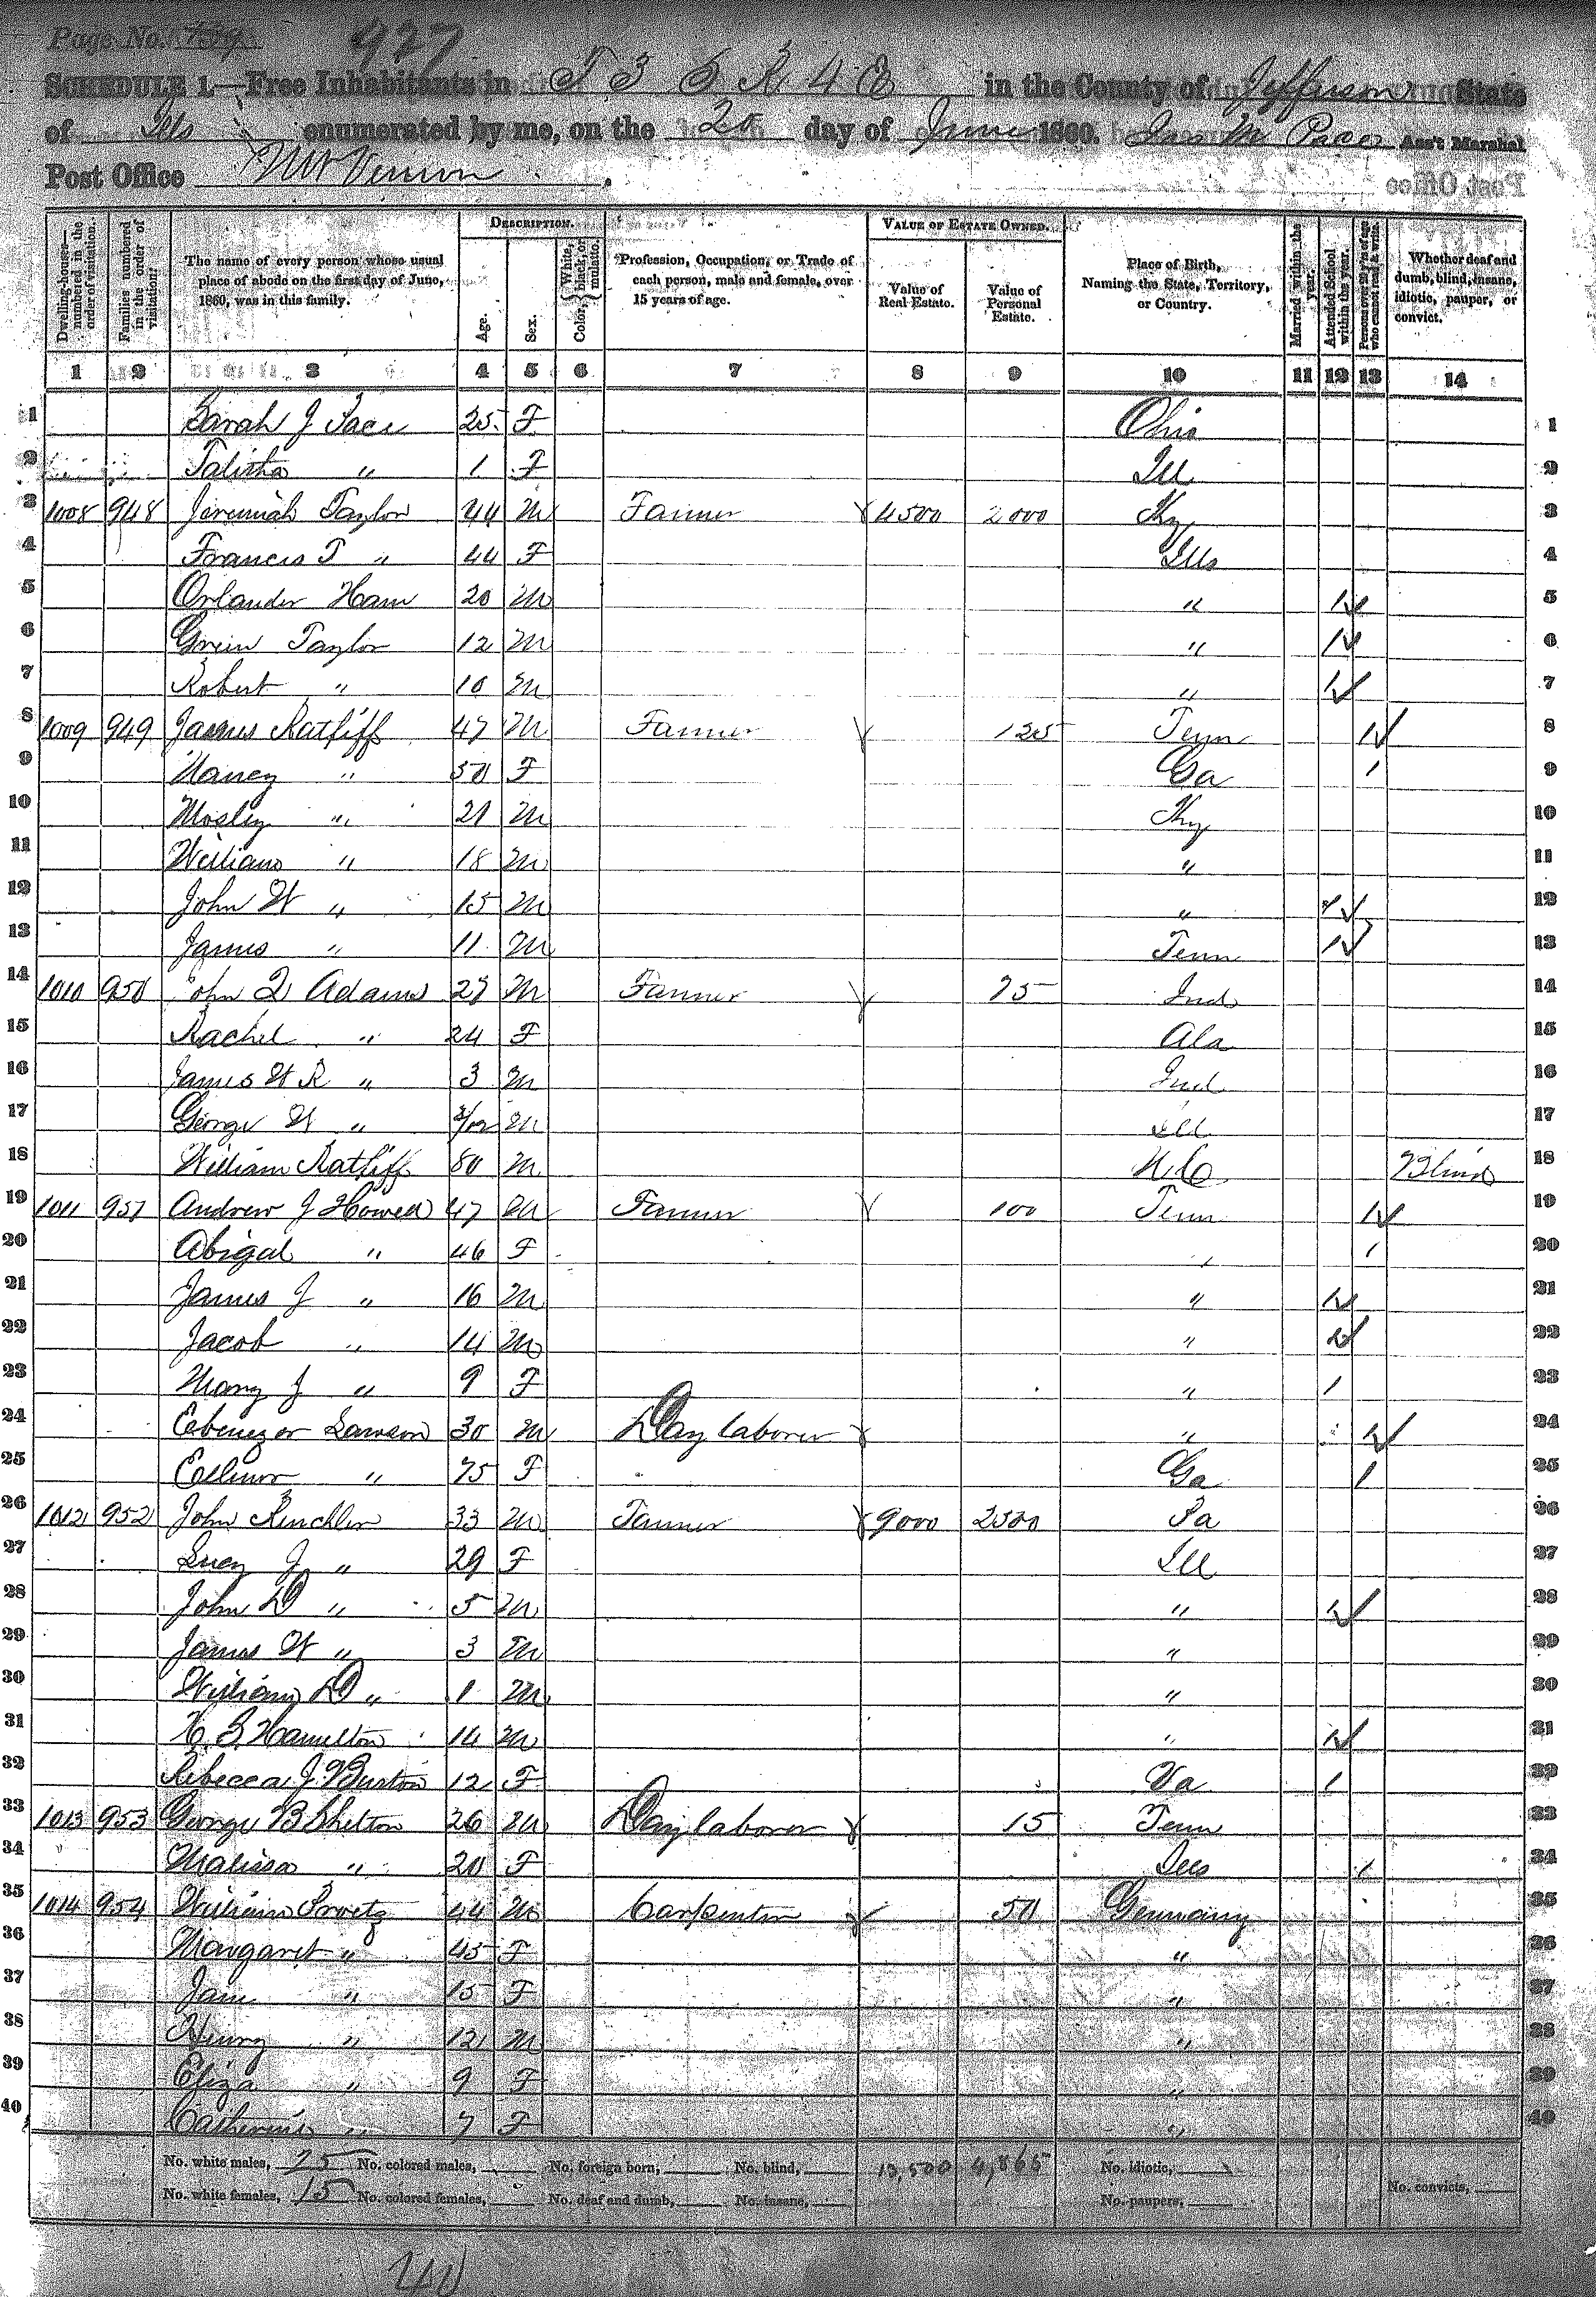 Page No. 
927
SCHEDULE 1.—Free Inhabitants in T 3 S R 4 E in the County of Jefferson State
of Ills enumerated by me, on the 20 day of June 1860. Jas M Pace Ass't Marshal
Post Office Mt Vernon.
DESCRIPTION. VALUE OF ESTATE OWNED.
Dwelling-houses—numbered in the order of visitation. Families numbered in the order of visitation. The name of every person whose usual place of abode on the first day of June, 1860, was in this family. Age. Sex. Color, White, black, or mulatto. Profession, Occupation, or Trade of each person, male and female, over 15 years of age. Value of Real Estate. Value of Personal Estate. Place of Birth, Naming the State, Territory, or Country. Married within the year. Attended School within the year. Persons over 20 y'rs of age who cannot read & write. Whether deaf and dumb, blind, insane, idiotic, pauper, or convict.
1 2 3 4 5 6 7 8 9 10 11 12 13 14
1 Sarah J Pace 25 F Ohio 1
2 Talitha " 1 F Ill 2
3 1008 948 Jeremiah Taylor 44 M Farmer 4500 2000 Ky 3
4 Francis T " 44 F Ills 4
5 Orlander Ham 20 M " 1 5
6 Green Taylor 12 M " 1 6
7 Robert " 10 M " 1 7
8 1009 949 James Ratliff 47 M Farmer 125 Tenn 1 8
9 Nancy " 50 F Ga 1 9
10 Mosley " 21 M Ky 10
11 William " 18 M " 11
12 John W " 15 M " 1 12
13 James " 11 M Tenn 1 13
14 1010 950 John Q Adams 27 M Farmer 75 Ind 14
15 Rachel " 24 F Ala 15
16 James W R " 3 M Ind 16
17 George W " /12 M Ill 17
18 William Ratliff 80 M N C Blind 18
19 1011 951 Andrew J Howell 47 M Farmer 100 Tenn 1 19
20 Abigal " 46 F " 1 20
21 James J " 16 M " 1 21
22 Jacob " 14 M " 1 22
23 Mary J " 9 F " 1 23
24 Ebenezer Lawson 30 M Day laborer " 1 24
25 Ellinor " 75 F Ga 1 25
26 1012 952 John 33 M Farmer 9000 2500 Pa 26
27 Lucy J " 29 F Ill 27
28 John D " 5 M " 1 28
29 James W " 3 M " 29
30 William D " 1 M " 30
31 Hamilton 14 M " 1 31
32 Rebecca J Burton 12 F Va 1 32
33 1013 953 George B Shelton 26 M Day laborer 15 Tenn 33
34 Malissa " 20 F Ills 1 34
35 1014 954 William 44 M Carpenter 50 Germany 35
36 Margaret " 45 F " 36
37 Jane " 15 F " 37
38 Henry " 12 M " 38
39 Eliza " 9 F " 39
40 Catherine " 7 F " 40
No. white males, 25 No. colored males, No. foreign born, No. blind, 13,500 4,865 No. idiotic,
No. white females, 15 No. colored females, No. deaf and dumb, No. insane, No. paupers, No. convicts,